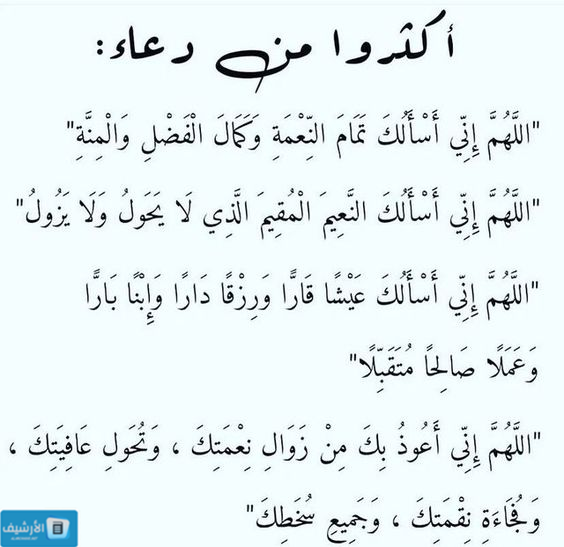 أكثروا من دعاء:
"اللَّهُمَّ إِنِّي أَسْأَلُكَ تَمَامَ النِّعْمَةِ وَكَمَالَ الْفَضْلِ وَالْمِنَّةِ"
"اللَّهُمَّ إِنِّي أَسْأَلُكَ النَّعِيمَ الْمُقِيمَ الَّذِي لَا يَحَوِلُ وَلَا يَزُولُ"
"اللَّهُمَّ إِنِّي أَسْأَلُكَ عَيْشًا قَارًّا وَرِزْقًا دَارًا وَإِبْنًا بَارًّا
وَعَمَلًا صَالِحًا مُتَقَبِّلًا"
"اللَّهُمَّ إِنِّي أَعُوذُ بِكَ مِنْ زَوَالِ نِعْمَتِكَ ، وَتَحَوُلِ عَافِيَتِكَ ،
وَفُجَاءَةِ نِقْمَتِكَ ، وَجَمِيعِ سُخَطِكَ"
الأرشيف